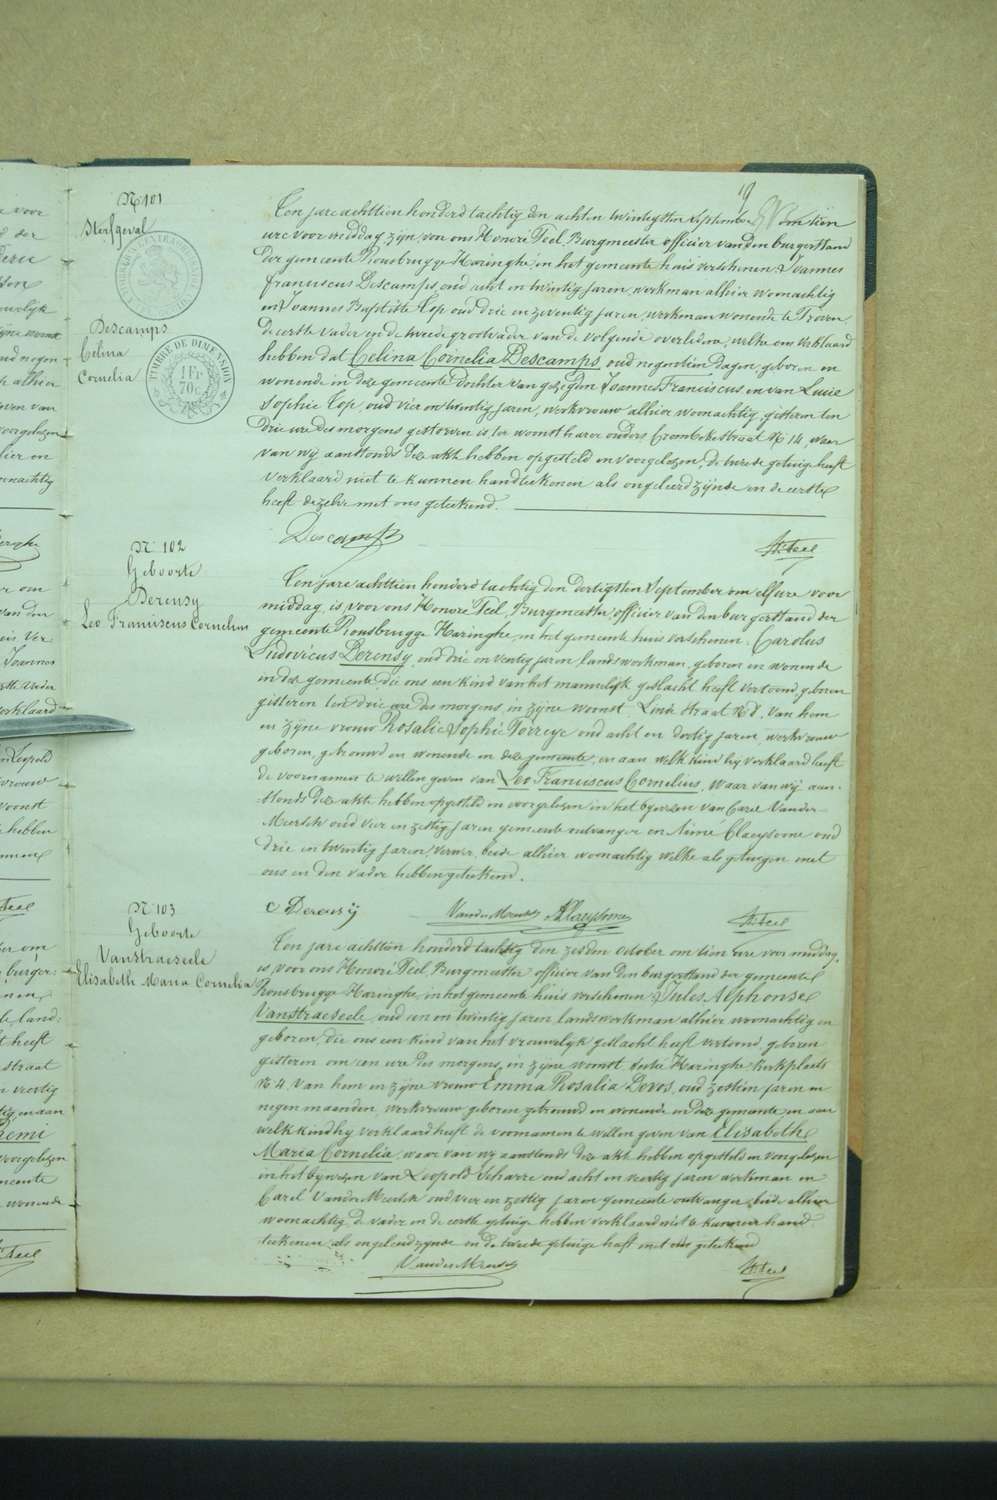 19
Nº 101
Sterfgeval
Descamps
Celina
Cornelia
TIMBRE DE DIMENSION
1 Fr
70c
Ten jare achttien honderd tachtig den achten twintigsten September om tien
ure voor middag zijn, voor ons Honoré Teel, Burgmeester officier van den burgerstand
der gemeente Rousbrugge Haringhe, in het gemeente huis verschenen: Joannes
Franciscus Descamps, oud acht en twintig jaren, werkman alhier woonachtig
en Joannes Baptiste Top oud drie en zeventig jaren, werkman wonende te Proven
de eerste vader en de tweede grootvader van de volgende overledene, welke ons verklaard
hebben dat Celina Cornelia Descamps, oud negentien dagen, geboren en
wonende in deze gemeente Dochter van gezegden Joannes Franciscus en van Lucie
Sophie Top, oud vier en twintig jaren, werkvrouw alhier woonachtig, gisteren ten
drie ure des morgens gestorven is ter woonst harer ouders Crombekestraat Nº 14, waar
van wij aanstonds deze akt hebben opgesteld en voorgelezen, de tweede getuige heeft
verklaard niet te kunnen handteekenen als ongeleerd zijnde en de eerste
heeft dezelve met ons geteekend.
Descamps
H. Teel
Nº 102
Geboorte
Derensy
Leo Franciscus Cornelius
Ten jare achttien honderd tachtig den dertigsten September om elf ure voor
middag, is voor ons Honoré Teel, Burgmeester, officier van den burgerstand der
gemeente Rousbrugge Haringhe, in het gemeente huis verschenen: Carolus
Ludovicus Derensy, oud drie en veertig jaren landswerkman, geboren en wonende
in deze gemeente, die ons een kind van het mannelijk geslacht heeft vertoond, geboren
gisteren ten drie ure des morgens, in zijne woonst Linde straat Nº 8, van hem
en zijne vrouw Rosalie Sophie Torreye oud acht en dertig jaren, werkvrouw
geboren, getrouwd en wonende in deze gemeente, en aan welk kind hij verklaard heeft
de voornamen te willen geven van Leo Franciscus Cornelius, waar van wij aan-
stonds deze akte hebben opgesteld en voorgelezen in het bijwezen van Carel Vander
Meersch oud vier en zestig jaren gemeente ontvanger en Aimé Claeysoone oud
drie en twintig jaren, verwer, beide alhier woonachtig welke als getuigen met
ons en den vader hebben geteekend.
C Derensÿ
VanderMeersch
A Claeysoone
H. Teel
Nº 103
Geboorte
Vanstraeseele
Elisabeth Maria Cornelia
Ten jare achttien honderd tachtig den zesden October om tien ure voor middag,
is, voor ons Honoré Teel, Burgmeester officier van den burgerstand der gemeente
Rousbrugge Haringhe, in het gemeente huis verschenen: Jules Alphonse
Vanstraeseele, oud een en twintig jaren landswerkman alhier woonachtig en
geboren, die ons een kind van het vrouwelijk geslacht heeft vertoond, geboren
gisteren om een ure des morgens, in zijne woonst Sectie Haringhe Kerkplaets
Nº 4, van hem en zijne vrouw Emma Rosalia Devos, oud zestien jaren en
negen maanden, werkvrouw geboren getrouwd en wonende in deze gemeente en aan
welk kind hij verklaard heeft de voornamen te willen geven van Elisabeth
Maria Cornelia, waar van wij aanstonds deze akt hebben opgesteld en voorgelezen
in het bijwezen van Leopold Scharre oud acht en veertig jaren werkman en
Carel Vander Meersch oud vier en zestig jaren gemeente ontvanger, beide alhier
woonachtig de vader en de eerste getuige hebben verklaard niet te kunnen hand
teekenen als ongeleerd zijnde en de tweede getuige heeft met ons geteekend
VanderMeersch
H. Teel